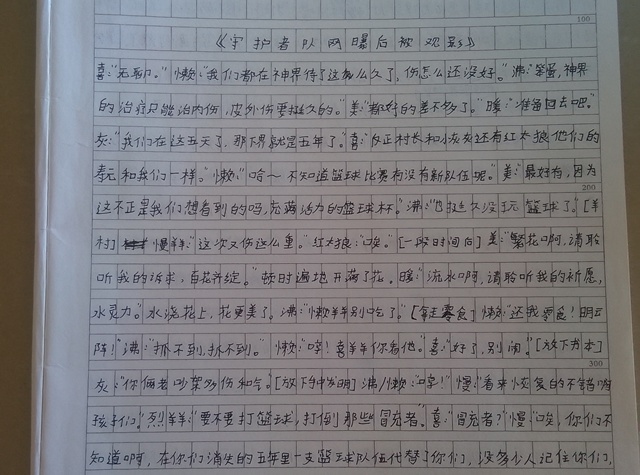 100
《守护者队网曝后被观影》
喜:“无聊。”懒:“我们都在神界待了这么久了,伤怎么还没好。”沸:“笨蛋,神界
的治疗只能治内伤,皮外伤要挺久的。”美:“都好的差不多了。”暖:“准备回去吧。”
灰:“我们在这五天了,那下界就是五年了。”喜:“反正村长和小灰灰还有红太狼他们的
寿元和我们一样。”懒:“哈~不知道篮球比赛有没有新队伍呢。”美:“最好有,因为
200
这不正是我们想看到的吗,充满活力的篮球杯。”沸:“也挺久没玩篮球了。”[羊
村]慢羊:“这次又伤这么重。”红太狼:“唉。”[一段时间后]美:“繁花啊,请聆
听我的诉求,百花齐绽。”顿时遍地开满了花。暖:“流水啊,请聆听我的祈愿,
水灵力。”水浇花上,花更美了。沸:“懒羊羊别吃了。”[拿走零食]懒:“还我零食!
阵!”沸:“抓不到,抓不到。”懒:“哼!喜羊羊你看他。”喜:“好了,别闹。”[放下书本]
300
灰:“你俩老吵架多伤和气。”[放下中发明]沸/懒:“哼!”慢:“看来恢复的不错嘛
孩子们。”烈羊羊:“要不要打篮球,打倒那些冒充者。”喜:“冒充者?”慢:“唉,你们不
知道啊,在你们消失的五年里一支篮球队伍代替了你们,没多少人记住你们,